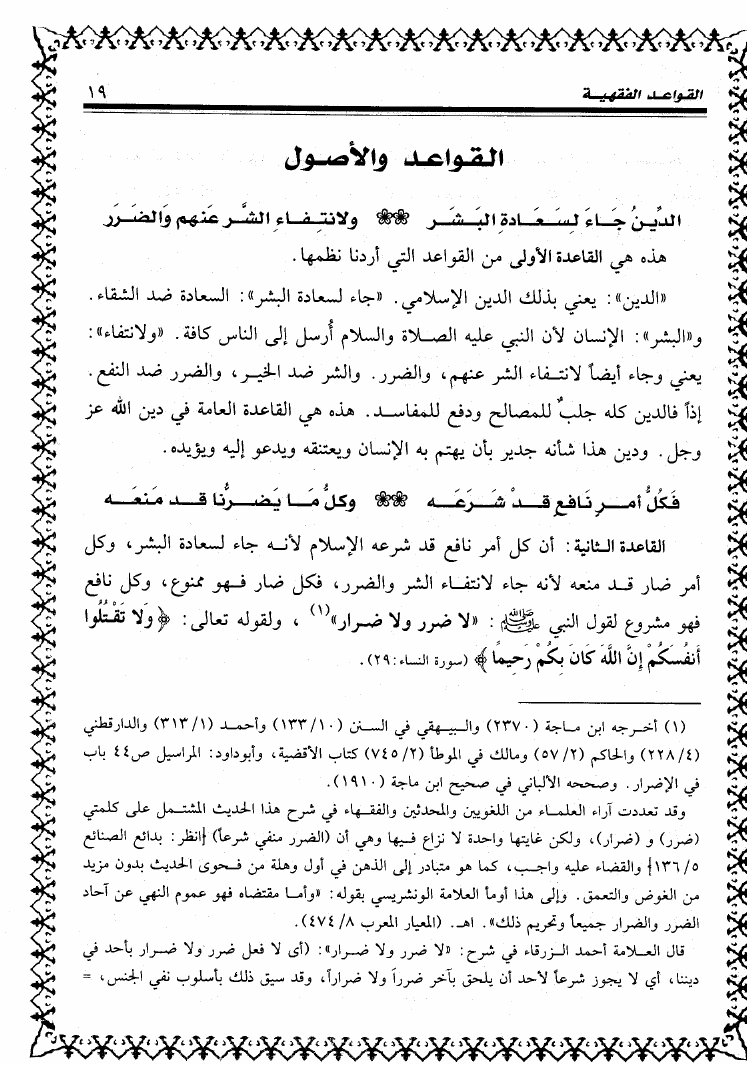 القواعد الفقهية ١٩
القواعد والأصول
الدِّينُ جَاءَ لسَعَادةِ البَشَر ولانتفاءِ الشَّر عَنهم وَالضَرَر
هذه هي القاعدة الأولى من القواعد التي أردنا نظمها.
«الدين»: يعني بذلك الدين الإسلامي. «جاء لسعادة البشر»: السعادة ضد الشقاء.
و«البشر»: الإنسان لأن النبي عليه الصلاة والسلام أُرسل إلى الناس كافة. «ولانتفاء»:
يعني وجاء أيضاً لانتفاء الشر عنهم، والضرر. والشر ضد الخير، والضرر ضد النفع.
إذاً فالدين كله جلبٌ للمصالح ودفع للمفاسد. هذه هي القاعدة العامة في دين الله عز
وجل. ودين هذا شأنه جدير بأن يهتم به الإنسان ويعتنقه ويدعو إليه ويؤيده.
فَكُلُّ أمرٍ نَافعٍ قدْ شَرَعَه وكلُّ مَا يَضرُّنا قد مَنعَه
القاعدة الثانية: أن كل أمر نافع قد شرعه الإسلام لأنه جاء لسعادة البشر، وكل
أمر ضار قد منعه لأنه جاء لانتفاء الشر والضرر، فكل ضار فهو ممنوع، وكل نافع
فهو مشروع لقول النبي ﷺ: «لا ضرر ولا ضرار»(١)، ولقوله تعالى: ﴿وَلا تَقْتُلُوا
أَنفُسَكُمْ إِنَّ اللَّهَ كَانَ بِكُمْ رَحِيمًا﴾ (سورة النساء:٢٩).
(١) أخرجه ابن ماجة (٢٣٧٠) والبيهقي في السنن (١٠/١٣٣) وأحمد (١/٣١٣) والدارقطني
(٤/٢٢٨) والحاكم (٢/٥٧) ومالك في الموطأ (٢/٧٤٥) كتاب الأقضية، وأبوداود: المراسيل ص٤٤ باب
في الإضرار. وصححه الألباني في صحيح ابن ماجة (١٩١٠).
وقد تعددت آراء العلماء من اللغويين والمحدثين والفقهاء في شرح هذا الحديث المشتمل على كلمتي
(ضرر) و (ضرار)، ولكن غايتها واحدة لا نزاع فيها وهي أن (الضرر منفي شرعاً) {انظر: بدائع الصنائع
٥/١٣٦} والقضاء عليه واجب، كما هو متبادر إلى الذهن في أول وهلة من فحوى الحديث بدون مزيد
من الغوص والتعمق. وإلى هذا أومأ العلامة الونشريسي بقوله: «وأما مقتضاه فهو عموم النهي عن آحاد
الضرر والضرار جميعاً وتحريم ذلك». اهـ. (المعيار المعرب ٨/٤٧٤).
قال العلامة أحمد الزرقاء في شرح: «لا ضرر ولا ضرار»: (أى لا فعل ضرر ولا ضرار بأحد في
ديننا، أي لا يجوز شرعاً لأحد أن يلحق بآخر ضرراً ولا ضراراً، وقد سيق ذلك بأسلوب نفي الجنس، =